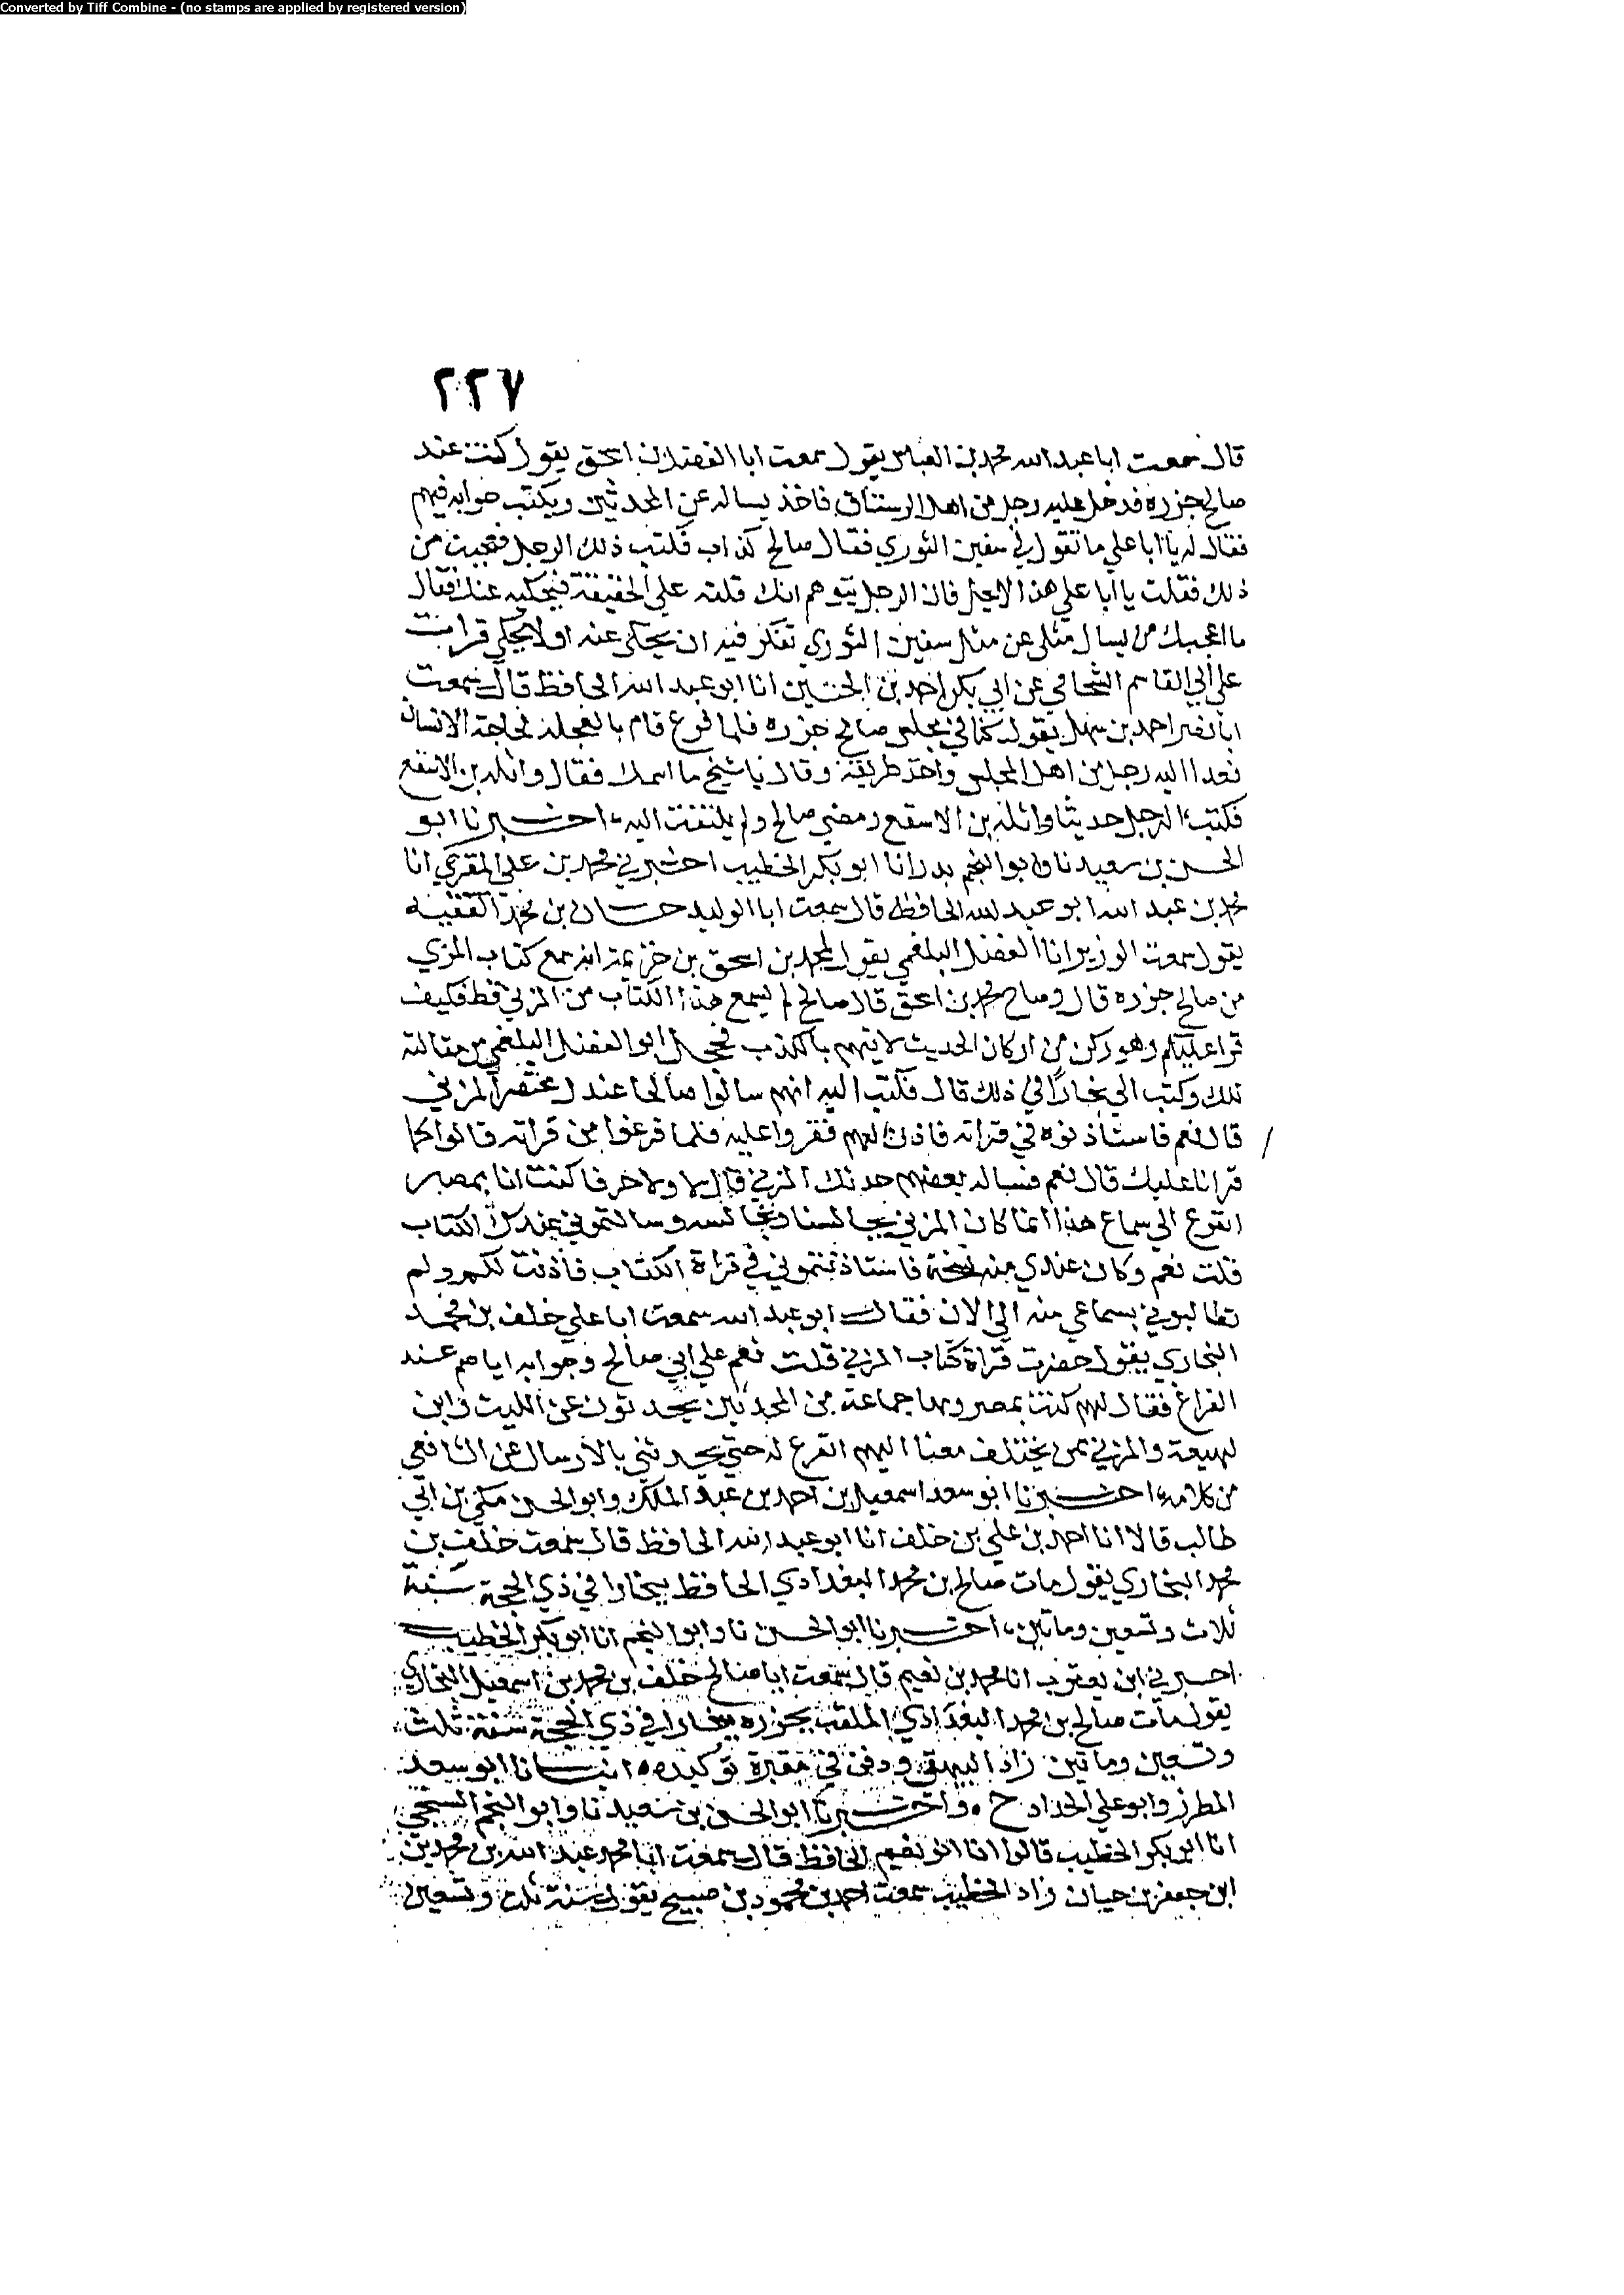 Converted by Tiff Combine - (no stamps are applied by registered version)
٢٢٧
قال سمعت ابا عبد الله محمد بن العباس يقول سمعت ابا الفضل بن اسحق يقول كنت عند
صالح جزره فدخل عليه رجل من اهل الرستاق فاخذ يساله عن المحدثين ويكتب جوابه فيهم
فقال له يا ابا علي ما تقول في سفين الثوري فقال صالح كذاب فكتب ذلك الرجل فعجبت من
ذلك فقلت يا ابا علي هذا لا يحل فان الرجل يتوهم انك قلته على الحقيقة فيحكيه عنك فقال
ما اعجبك من يسال مثلي عن مثل سفين الثوري تفكر فيه ان يحكي عنه او لا يحكي قرات
على ابي القاسم الشحامي عن ابي بكر احمد بن الحسين انا ابو عبد الله الحافظ قال سمعت
ابا نصر احمد بن سهل يقول كنا في مجلس صالح جزره فلما فرغ قام بالعجلة لحاجة الانسان
فعدا اليه رجل من اهل المجلس واخذ طريقه وقال يا شيخ ما اسمك فقال واثلة بن الاسقع
فكتب الرجل حديثا واثلة بن الاسقع ومضى صالح ولم يلتفت اليه، اخبرنا ابو
الحسن بن سعيد نا وابو النجم بدر انا ابو بكر الخطيب اخبرني محمد بن علي المقري انا
محمد بن عبد الله ابو عبد الله الحافظ قال سمعت ابا الوليد حسان بن محمد الفقيه
يقول سمعت الوزير ابا الفضل البلعمي يقول لمحمد بن اسحق بن خزيمة انه سمع كتاب المزني
من صالح جزره قال وصاح محمد بن اسحق قال صالح لم يسمع هذا الكتاب من المزني قط فكيف
قرا عليكم وهو ركن من اركان الحديث لا يتهم بالكذب فخجل ابو الفضل البلعمي من مقالته
تلك وكتب الى بخارا في ذلك قال فكتب اليه انهم سالوا صالحا عندك مختصر المزني
قال نعم فاستاذنوه في قراته فاذن لهم فقروا عليه فلما فرغوا من قراته قالوا كما
قرانا عليك قال نعم فساله بعضهم حدثك المزني قال لا ولا حرفا كنت انا بمصر
اتفرغ الى سماع هذا انما كان المزني يجالسنا ونجالسه وسالتموني عندك الكتاب
قلت نعم وكان عندي منه نسخة فاستاذنتموني في قراة الكتاب فاذنت لكم ولم
تطالبوني بسماعي منه الى الان فقال ابو عبد الله سمعت ابا علي خلف بن محمد
البخاري يقول حضرت قراة كتاب المزني قلت نعم علي ابي صالح وجوابه اياهم عند
الفراغ فقال لهم كنت بمصر وبها جماعة من المحدثين يحدثون عن الليث وابن
لهيعة والمزني ممن يختلف معنا اليهم اتفرغ له حتى يحدثني بالارسال عن الشافعي
من كلامه، اخبرنا ابو سعد اسمعيل بن احمد بن عبد الملك وابو الحسن مكي بن ابي
طالب قالا انا احمد بن علي بن خلف انا ابو عبد الله الحافظ قال سمعت خلف بن
محمد البخاري يقول مات صالح بن محمد البغدادي الحافظ ببخارا في ذي الحجة سنة
ثلاث وتسعين وماتين، اخبرنا ابو الحسن نا وابو النجم انا ابو بكر الخطيب
اخبرني ابن يعقوب انا محمد بن نعيم قال سمعت ابا صالح خلف بن محمد بن اسمعيل البخاري
يقول مات صالح بن محمد البغدادي الملقب بجزره ببخارا في ذي الحجة سنة ثلث
وتسعين وماتين زاد البيهقي ودفن في مقبرة نوكنده انبانا ابو سعد
المطرز وابو علي الحداد ح واخبرنا ابو الحسن بن سعيد نا وابو النجم الشيحي
انا ابو بكر الخطيب قالوا انا ابو نعيم الحافظ قال سمعت ابا محمد عبد الله بن محمد بن
ابن جعفر بن حيان زاد الخطيب سمعت احمد بن محمود بن صبيح يقول سنة ثلث وتسعين